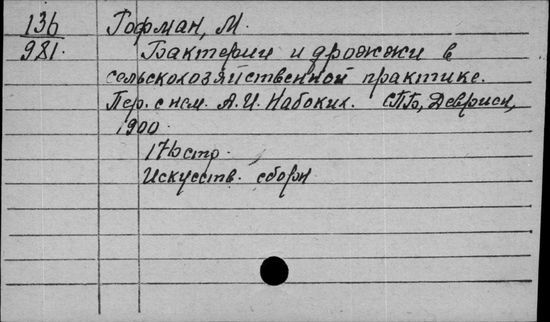 136 Гофман, М.
981. Бактерии и дрожжи в
сельскохозяйственной практике.
Пер. с нем. А.И. Набоких. СПБ, Девриен,
1900.
176 стр.
Искусств. сборн